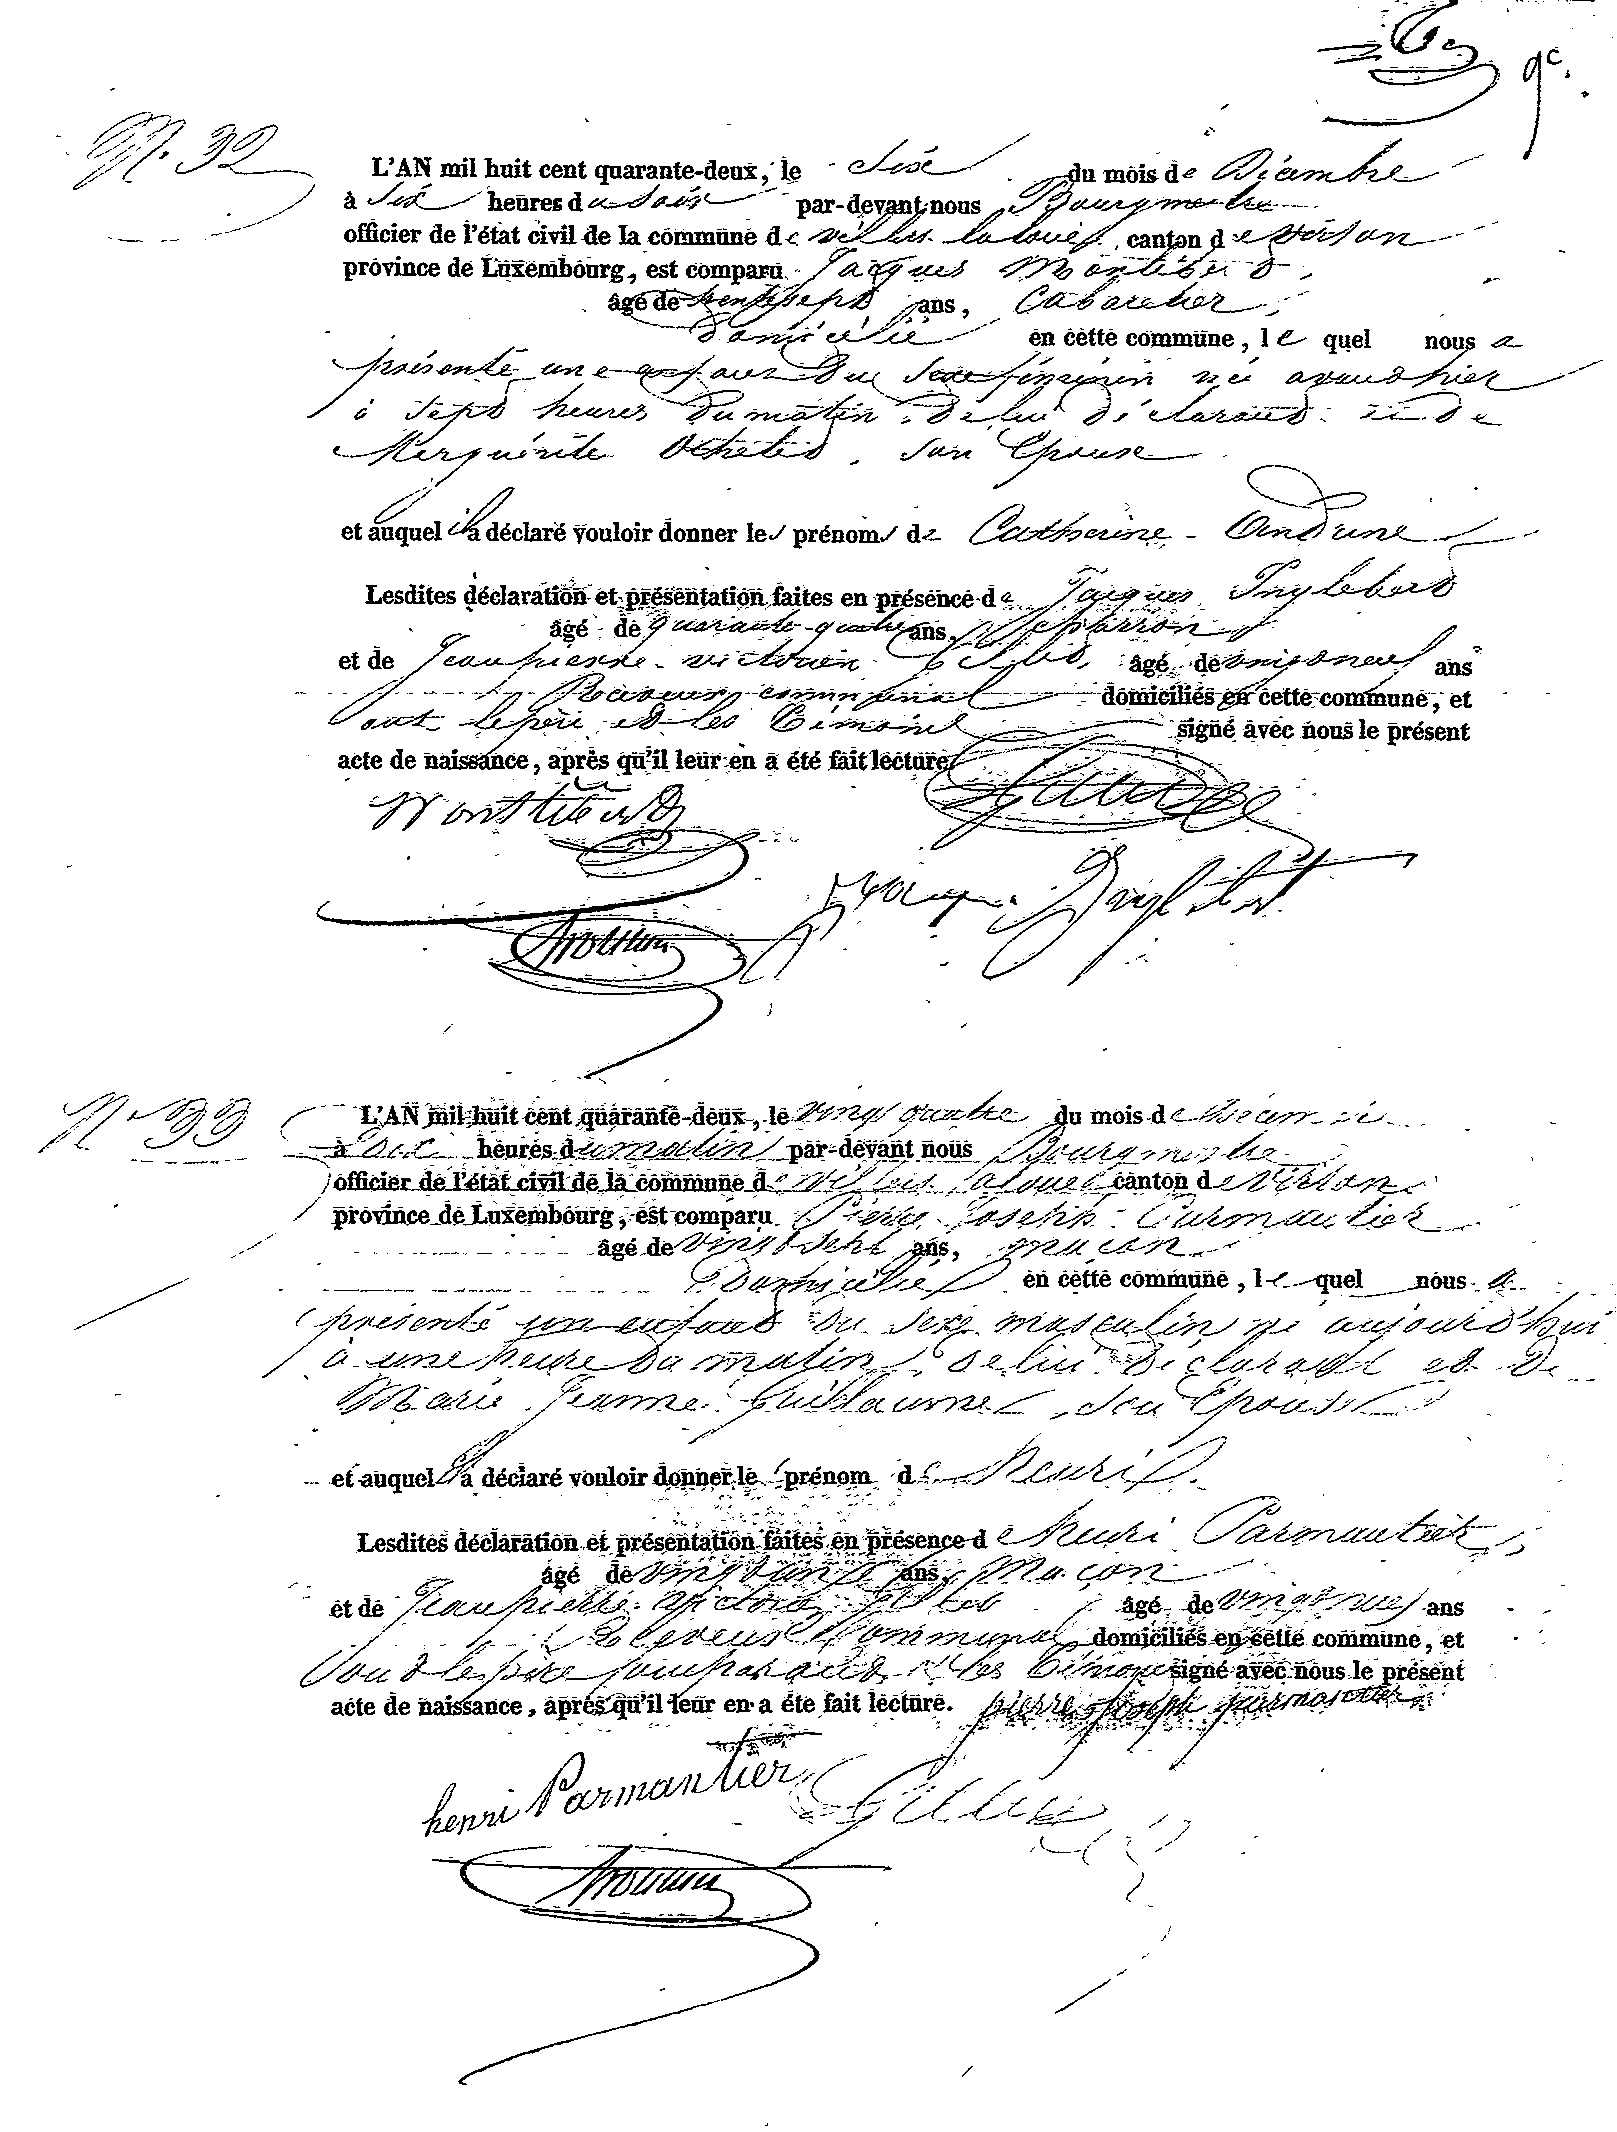 9e.
N. 32
L'AN mil huit cent quarante-deux, le Six du mois de Décembre
à Six heures du soir par-devant nous Bourgmestre
officier de l'état civil de la commune de villers la loue, canton de Virton
province de Luxembourg, est comparu Jacques
âgé de trente sept ans, Cabaretier,
domicilié en cette commune, le quel nous a
présenté une enfant du Sexe féminin née avant hier
à Sept heures du matin, de lui déclarant et de
Merguérite son Epouse
et auquel il a déclaré vouloir donner les prénoms de Catherine
Lesdites déclaration et présentation faites en présence de Jacques Inglebert
âgé de quarante-quatre ans,
et de Jean pierre victorin âgé de vingt neuf ans
Receveur communal domiciliés en cette commune, et
ont le père et les témoins signé avec nous le présent
acte de naissance, après qu'il leur en a été fait lecture
N° 33
L'AN mil huit cent quarante-deux, le vingt quatre du mois de
à Dix heures du matin par-devant nous Bourgmestre
officier de l'état civil de la commune de villers la loue canton de Virton
province de Luxembourg, est comparu Pierre Joseph Parmentier
âgé de vingt sept ans, maçon
Domicilié en cette commune, le quel nous a
présenté un enfant du Sexe masculin né aujourd'hui
à une heure du matin, de lui Déclarant et de
Marie Jeanne Guillaume, son Epouse
et auquel il a déclaré vouloir donner le prénom de Henri
Lesdites déclaration et présentation faites en présence de Henri Parmentier
âgé de ans, Maçon
et de Jean pierre Victorin âgé de vingt neuf ans
Receveur Communal domiciliés en cette commune, et
ont le père comparant et les témoins signé avec nous le présent
acte de naissance, après qu'il leur en a été fait lecture. pierre joseph
henri Parmantier